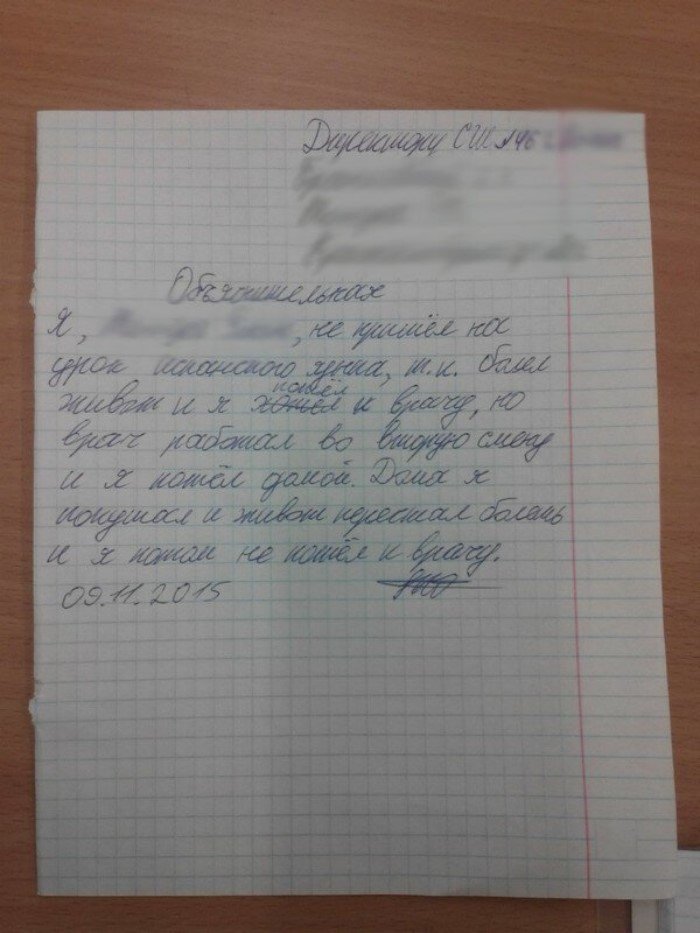 Директору СШ №46
Объяснительная
Я, , не пришёл на
урок испанского языка, т.к. болел
пошёл
живот и я хотел к врачу, но
врач работал во вторую смену
и я пошёл домой. Дома я
покушал и живот перестал болеть
и я потом не пошёл к врачу.
09.11.2015